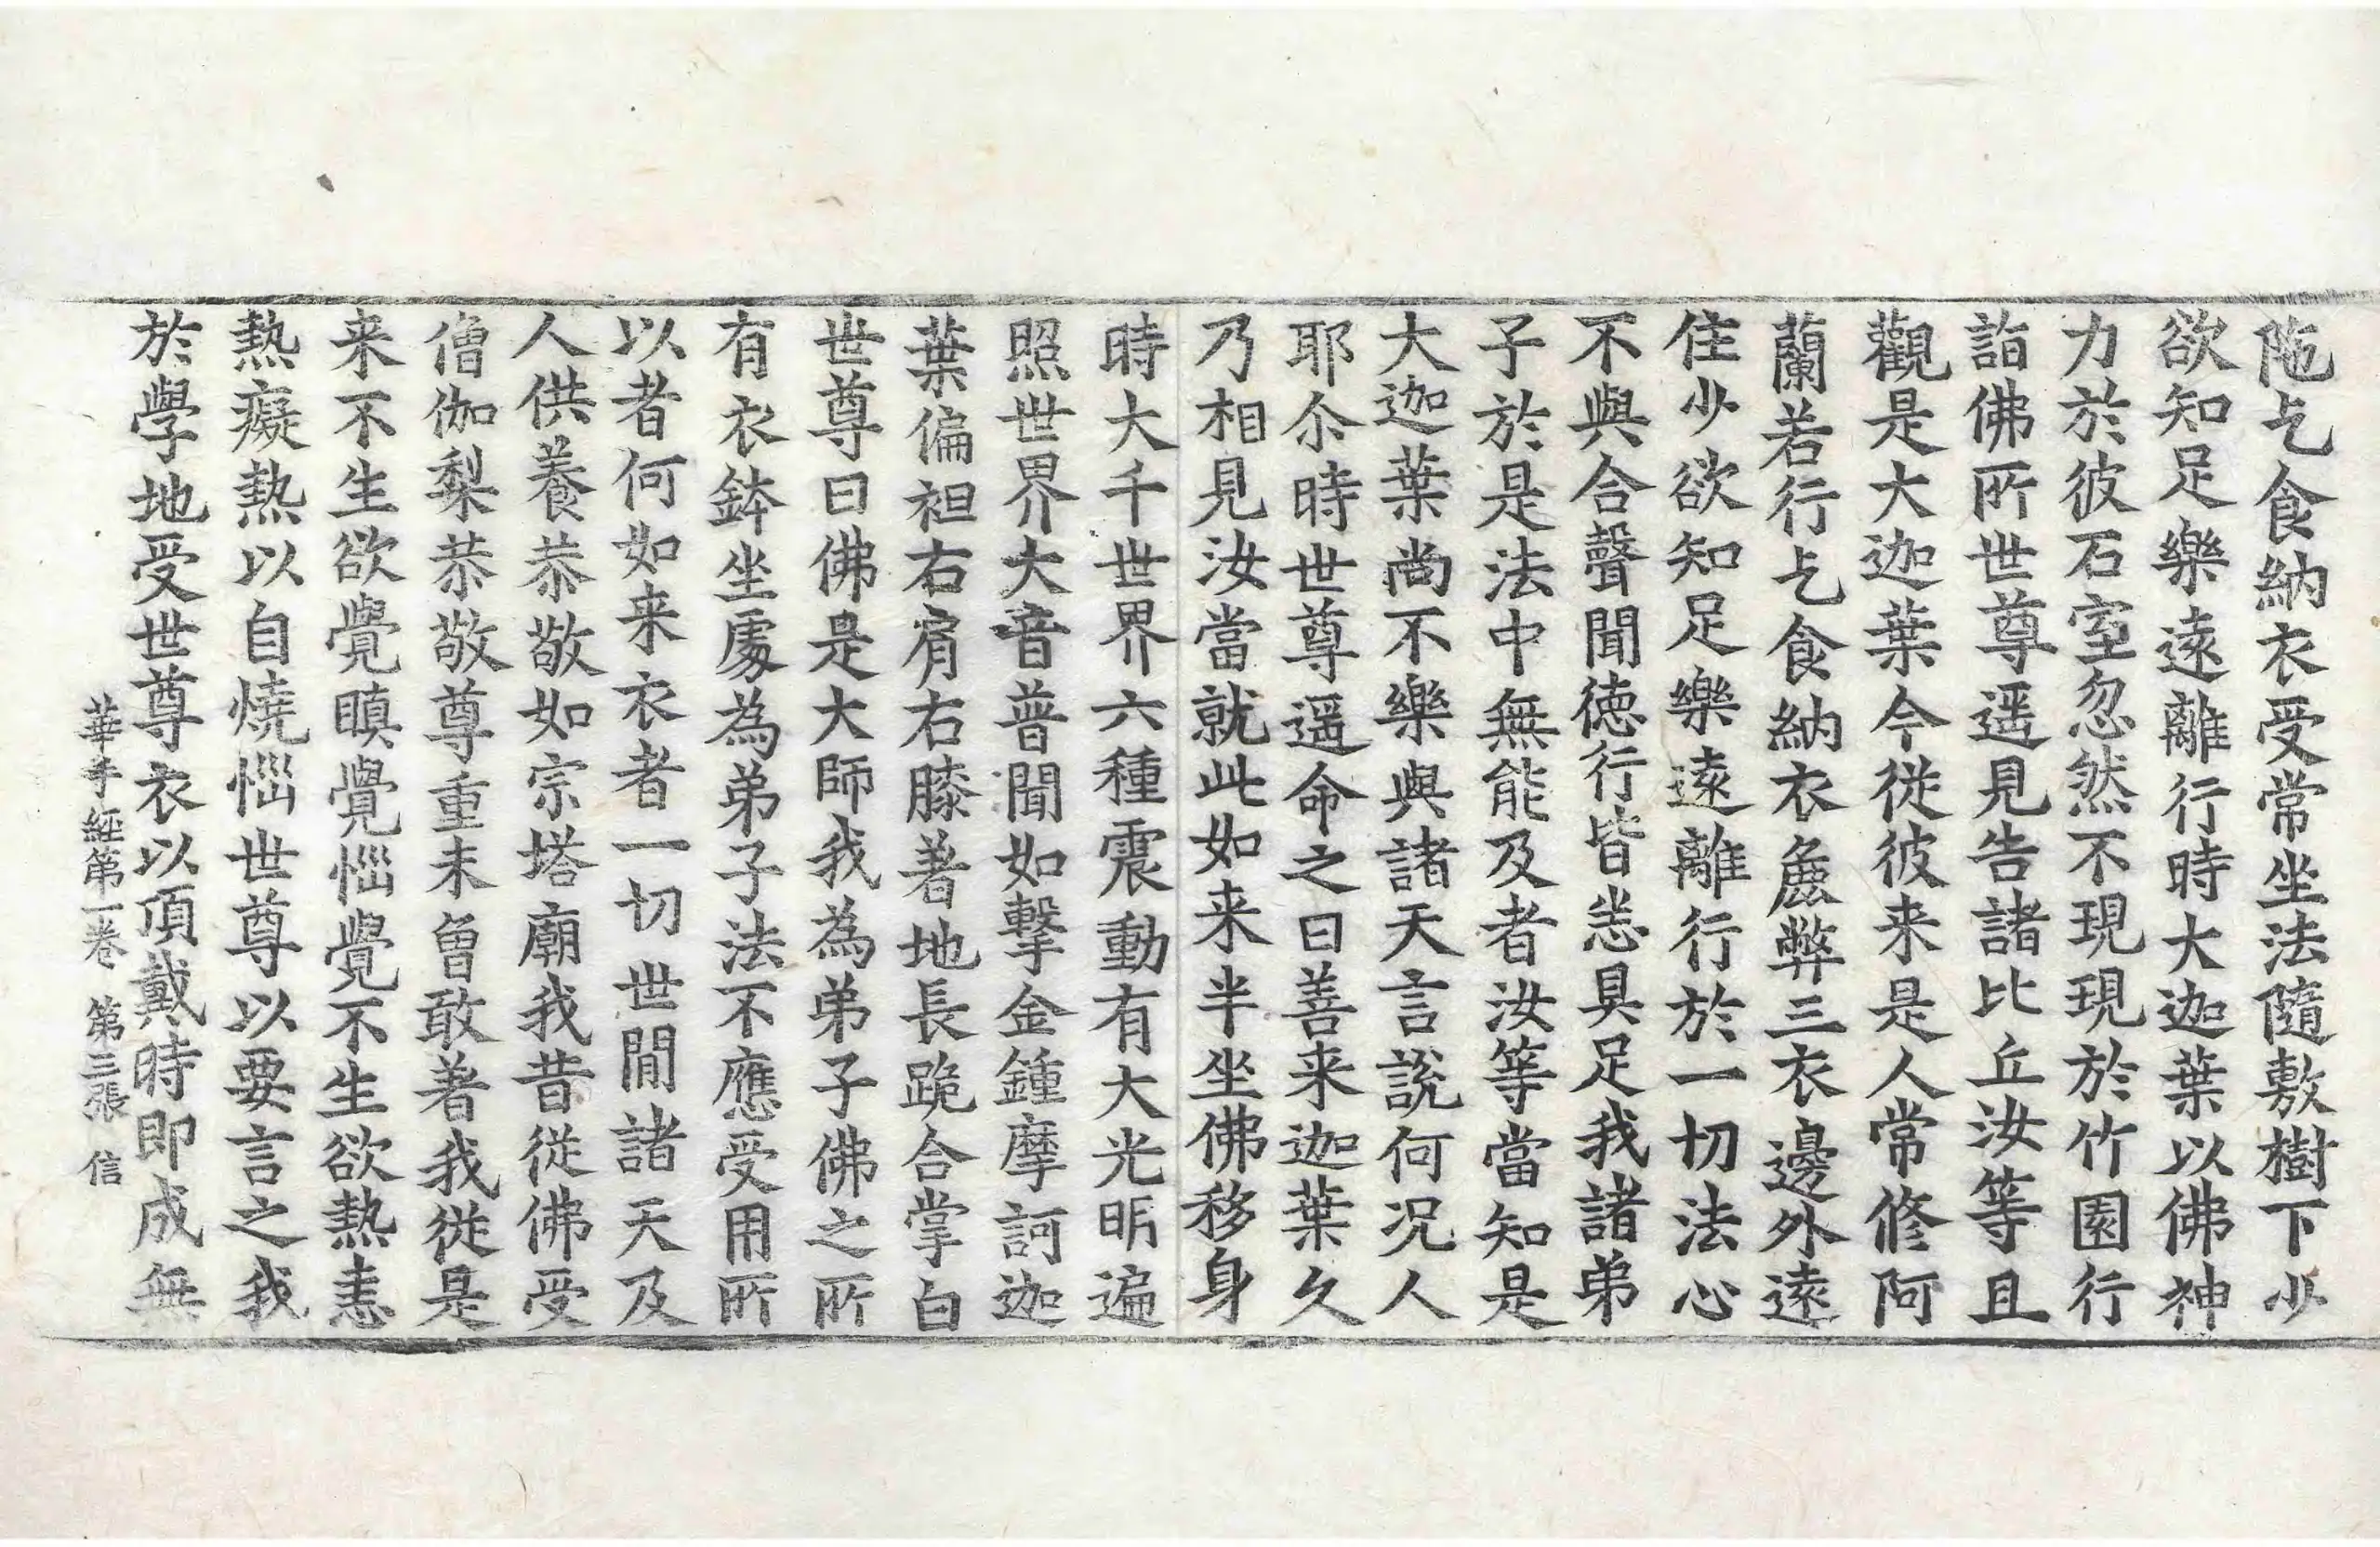 陁乞食納衣受常坐法隨敷樹下少
欲知足樂遠離行時大迦葉以佛神
力於彼石室忽然不現現於竹園行
詣佛所世尊遥見告諸比丘汝等且
觀是大迦葉今從彼来是人常修阿
蘭若行乞食納衣麁弊三衣邊外遠
住少欲知足樂遠離行於一切法心
不與合聲聞徳行皆悉具足我諸弟
子於是法中無能及者汝等當知是
大迦葉尚不樂與諸天言説何况人
耶尒時世尊遥命之曰善来迦葉久
乃相見汝當就此如来半坐佛移身
時大千世界六種震動有大光明遍
照世界大音普聞如擊金鍾摩訶迦
葉偏袒右肩右膝著地長跪合掌白
世尊曰佛是大師我為弟子佛之所
有衣鉢坐處為弟子法不應受用所
以者何如来衣者一切世間諸天及
人供養恭敬如宗塔廟我昔從佛受
僧伽梨恭敬尊重未曽敢著我從是
来不生欲覺瞋覺惱覺不生欲熱恚
熱癡熱以自燒惱世尊以要言之我
於學地受世尊衣以頂戴時即成無
華手經第一卷 第三張 信